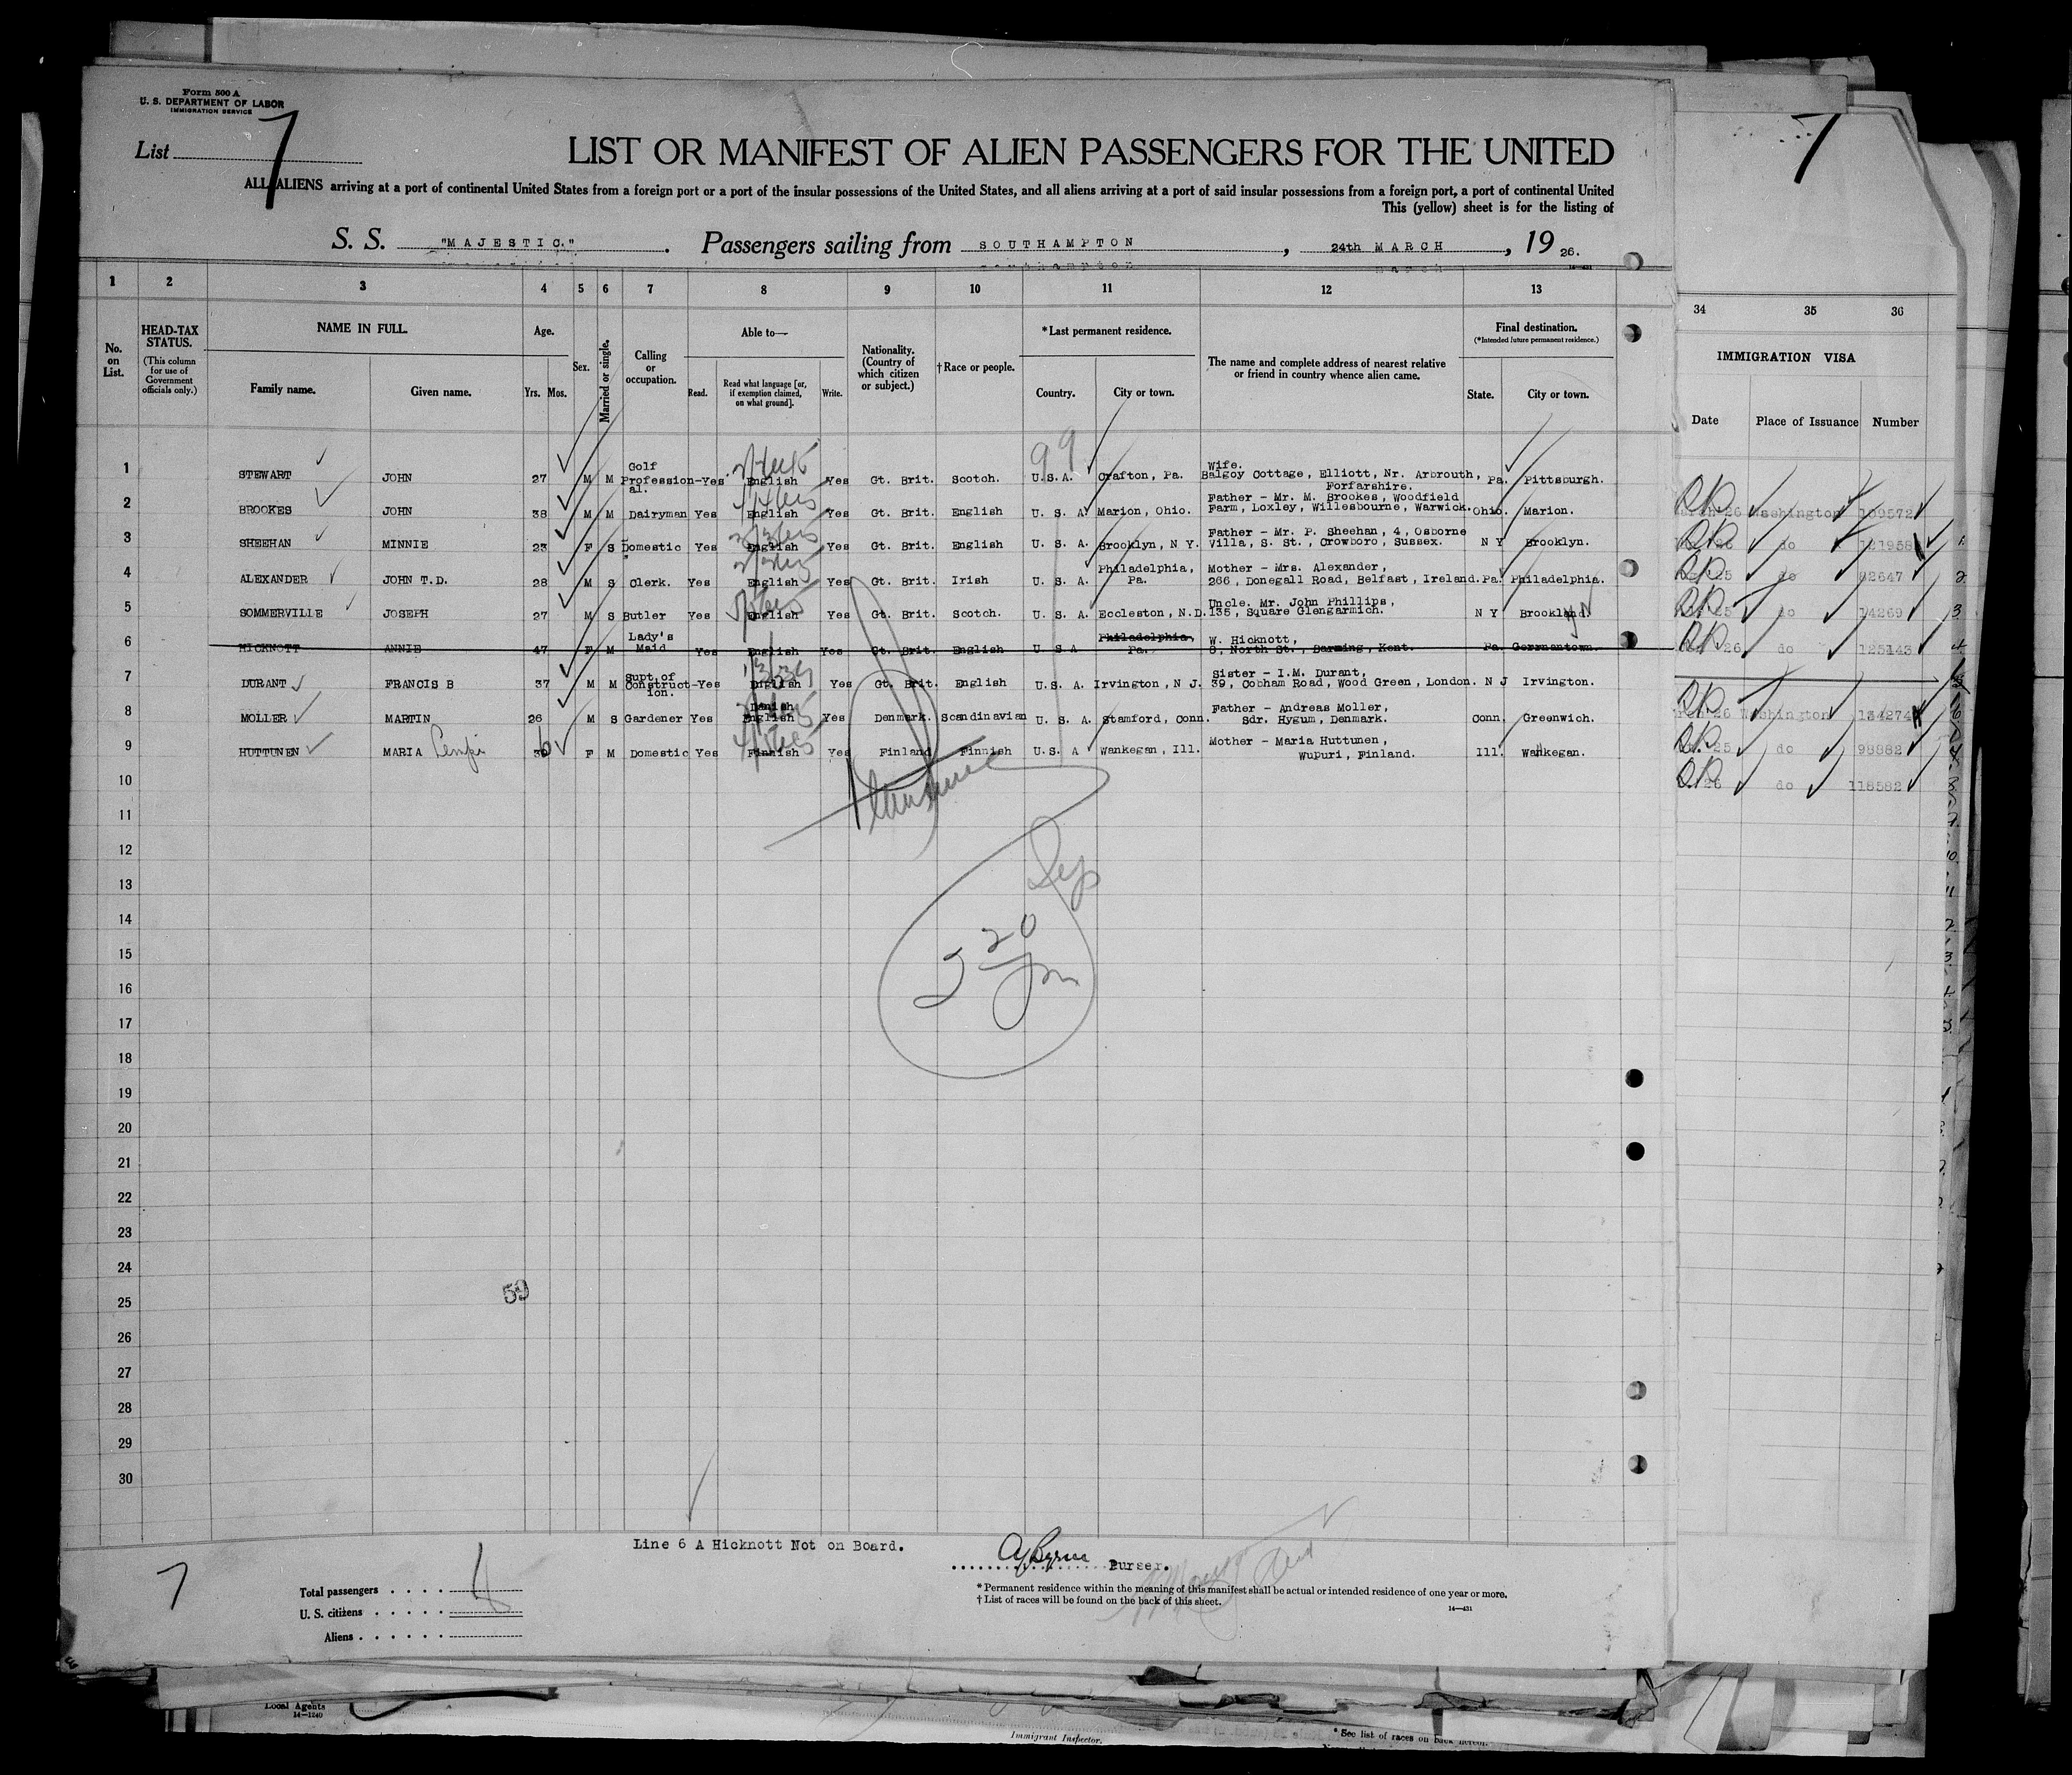 Form 500 A
U. S. DEPARTMENT OF LABOR
IMMIGRATION SERVICE
List 7
7
LIST OR MANIFEST OF ALIEN PASSENGERS FOR THE UNITED
ALL ALIENS arriving at a port of continental United States from a foreign port or a port of the insular possessions of the United States, and all aliens arriving at a port of said insular possessions from a foreign port, a port of continental United
This (yellow) sheet is for the listing of
S. S. "MAJESTIC." Passengers sailing from SOUTHAMPTON, 24th MARCH, 19 26.
1 2 3 4 5 6 7 8 9 10 11 12 13 34 35 36
No. on List.
HEAD-TAX STATUS.
(This column for use of Government officials only.)
NAME IN FULL.
Family name. Given name.
Age.
Yrs. Mos.
Sex.
Married or single.
Calling or occupation.
Able to—
Read. Read what language [or, if exemption claimed, on what ground]. Write.
Nationality. (Country of which citizen or subject.)
†Race or people.
*Last permanent residence.
Country. City or town.
The name and complete address of nearest relative or friend in country whence alien came.
Final destination.
(*Intended future permanent residence.)
State. City or town.
IMMIGRATION VISA
Date Place of Issuance Number
99
1 STEWART JOHN 27 M M Golf Profession-al. Yes English Yes Gt. Brit. Scotch. U.S.A. Crafton, Pa. Wife. Balgoy Cottage, Elliott, Nr. Arbrouth, Forfarshire. Pa. Pittsburgh.
2 BROOKES JOHN 38 M M Dairyman Yes English Yes Gt. Brit. English U. S. A. Marion, Ohio. Father - Mr. M. Brookes, Woodfield Farm, Loxley, Willesbourne, Warwick. Ohio. Marion.
3 SHEEHAN MINNIE 23 F S Domestic Yes English Yes Gt. Brit. English U. S. A. Brooklyn, N Y. Father - Mr. P. Sheehan, 4, Osborne Villa, S. St., Crowboro, Sussex. N Y Brooklyn.
4 ALEXANDER JOHN T.D. 28 M S Clerk. Yes English Yes Gt. Brit. Irish U. S. A. Philadelphia, Pa. Mother - Mrs. Alexander, 266, Donegall Road, Belfast, Ireland. Pa. Philadelphia.
5 SOMMERVILLE JOSEPH 27 M S Butler Yes English Yes Gt. Brit. Scotch. U. S. A. Eccleston, N.D. Uncle. Mr. John Phillips, 135, Square Glengarmich. N Y Brookland.
6 HICKNOTT ANNIE 47 F M Lady's Maid Yes English Yes Gt. Brit. English U S A Philadelphia, Pa. W. Hicknott, 8, North St., Barming, Kent. Pa. Germantown.
7 DURANT FRANCIS B 37 M M Supt. of Construct-ion. Yes English Yes Gt. Brit. English U.S. A. Irvington, N J. Sister - I.M. Durant, 39, Cobham Road, Wood Green, London. N J Irvington.
8 MOLLER MARTIN 26 M S Gardener Yes Danish English Yes Denmark. Scandinavian U. S. A. Stamford, Conn. Father - Andreas Moller, Sdr. Hygum, Denmark. Conn. Greenwich.
9 HUTTUNEN MARIA F M Domestic Yes Finnish Yes Finland Finnish U.S. A Wankegan, Ill. Mother - Maria Huttunen, Wupuri, Finland. Ill. Wankegan.
Washington 109572
do
do 82647
do 14269
26 do 125143
Washington 134274
25 do 98882
26 do 118582
10
11
12
13
14
15
16
17
18
19
20
21
22
23
24
25
26
27
28
29
30
2 20
59
Line 6 A Hicknott Not on Board.
Purser.
7
Total passengers
U. S. citizens
Aliens
* Permanent residence within the meaning of this manifest shall be actual or intended residence of one year or more.
† List of races will be found on the back of this sheet.
14—431
Local Agents
14—1240
Immigrant Inspector.
* See list of races on back hereof.